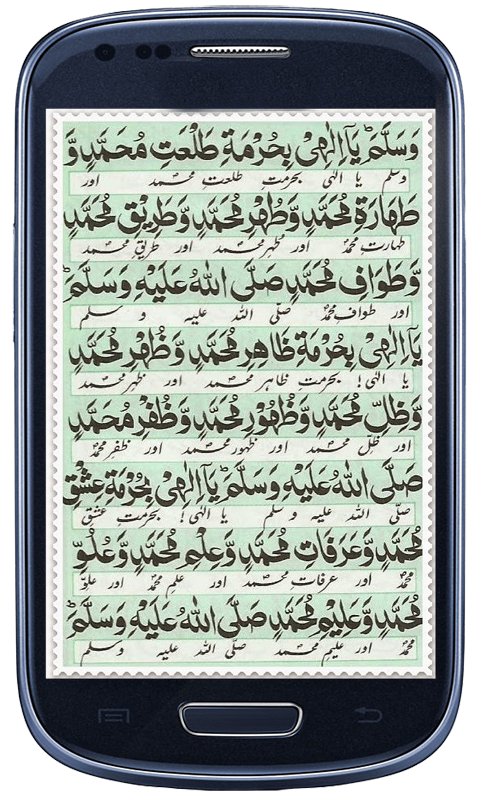 وَسَلَّمَ ؕ یَآ اِلٰھِیْ بِحُرْمَةِ طَلْعَتِ مُحَمَّدٍ وَّ
وسلم یا الہی بحرمتِ طلعتِ محمد اور
طَهَارَةِ مُحَمَّدٍ وَّطُهْرِ مُحَمَّدٍ وَّطَرِیْقِ مُحَمَّدٍ
طہارتِ محمد اور مطہر محمد اور طریقِ محمد
وَّطَوَافِ مُحَمَّدٍ صَلَّی اللهُ عَلَیْهِ وَسَلَّمَ ؕ
اور طوافِ محمد صلی اللہ علیہ و سلم
یَآ اِلٰھِیْ بِحُرْمَةِ ظَاهِرِ مُحَمَّدٍ وَّظُهْرِ مُحَمَّدٍ
یا الہٰی! بحرمتِ ظاہر محمد اور ظہر محمد
وَّظِلِّ مُحَمَّدٍ وَّظُهُوْرِ مُحَمَّدٍ وَّظُفْرِ مُحَمَّدٍ
اور ظل محمد اور ظہور محمد اور ظفر محمد
صَلَّی اللهُ عَلَیْهِ وَسَلَّمَ ؕ یَآ اِلٰھِیْ بِحُرْمَةِ عِشْقِ
صلی اللہ علیہ و سلم یا الہٰی! بحرمتِ عشق
مُحَمَّدٍ وَّعَرَفَاتِ مُحَمَّدٍ وَّعِلْمِ مُحَمَّدٍ وَّعُلُوِّ
محمد اور عرفاتِ محمد اور علمِ محمد اور علوِّ
مُحَمَّدٍ وَّعَلِیْمِ مُحَمَّدٍ صَلَّی اللهُ عَلَیْهِ وَسَلَّمَ ؕ
محمد اور علیمِ محمد صلی اللہ علیہ وسلم